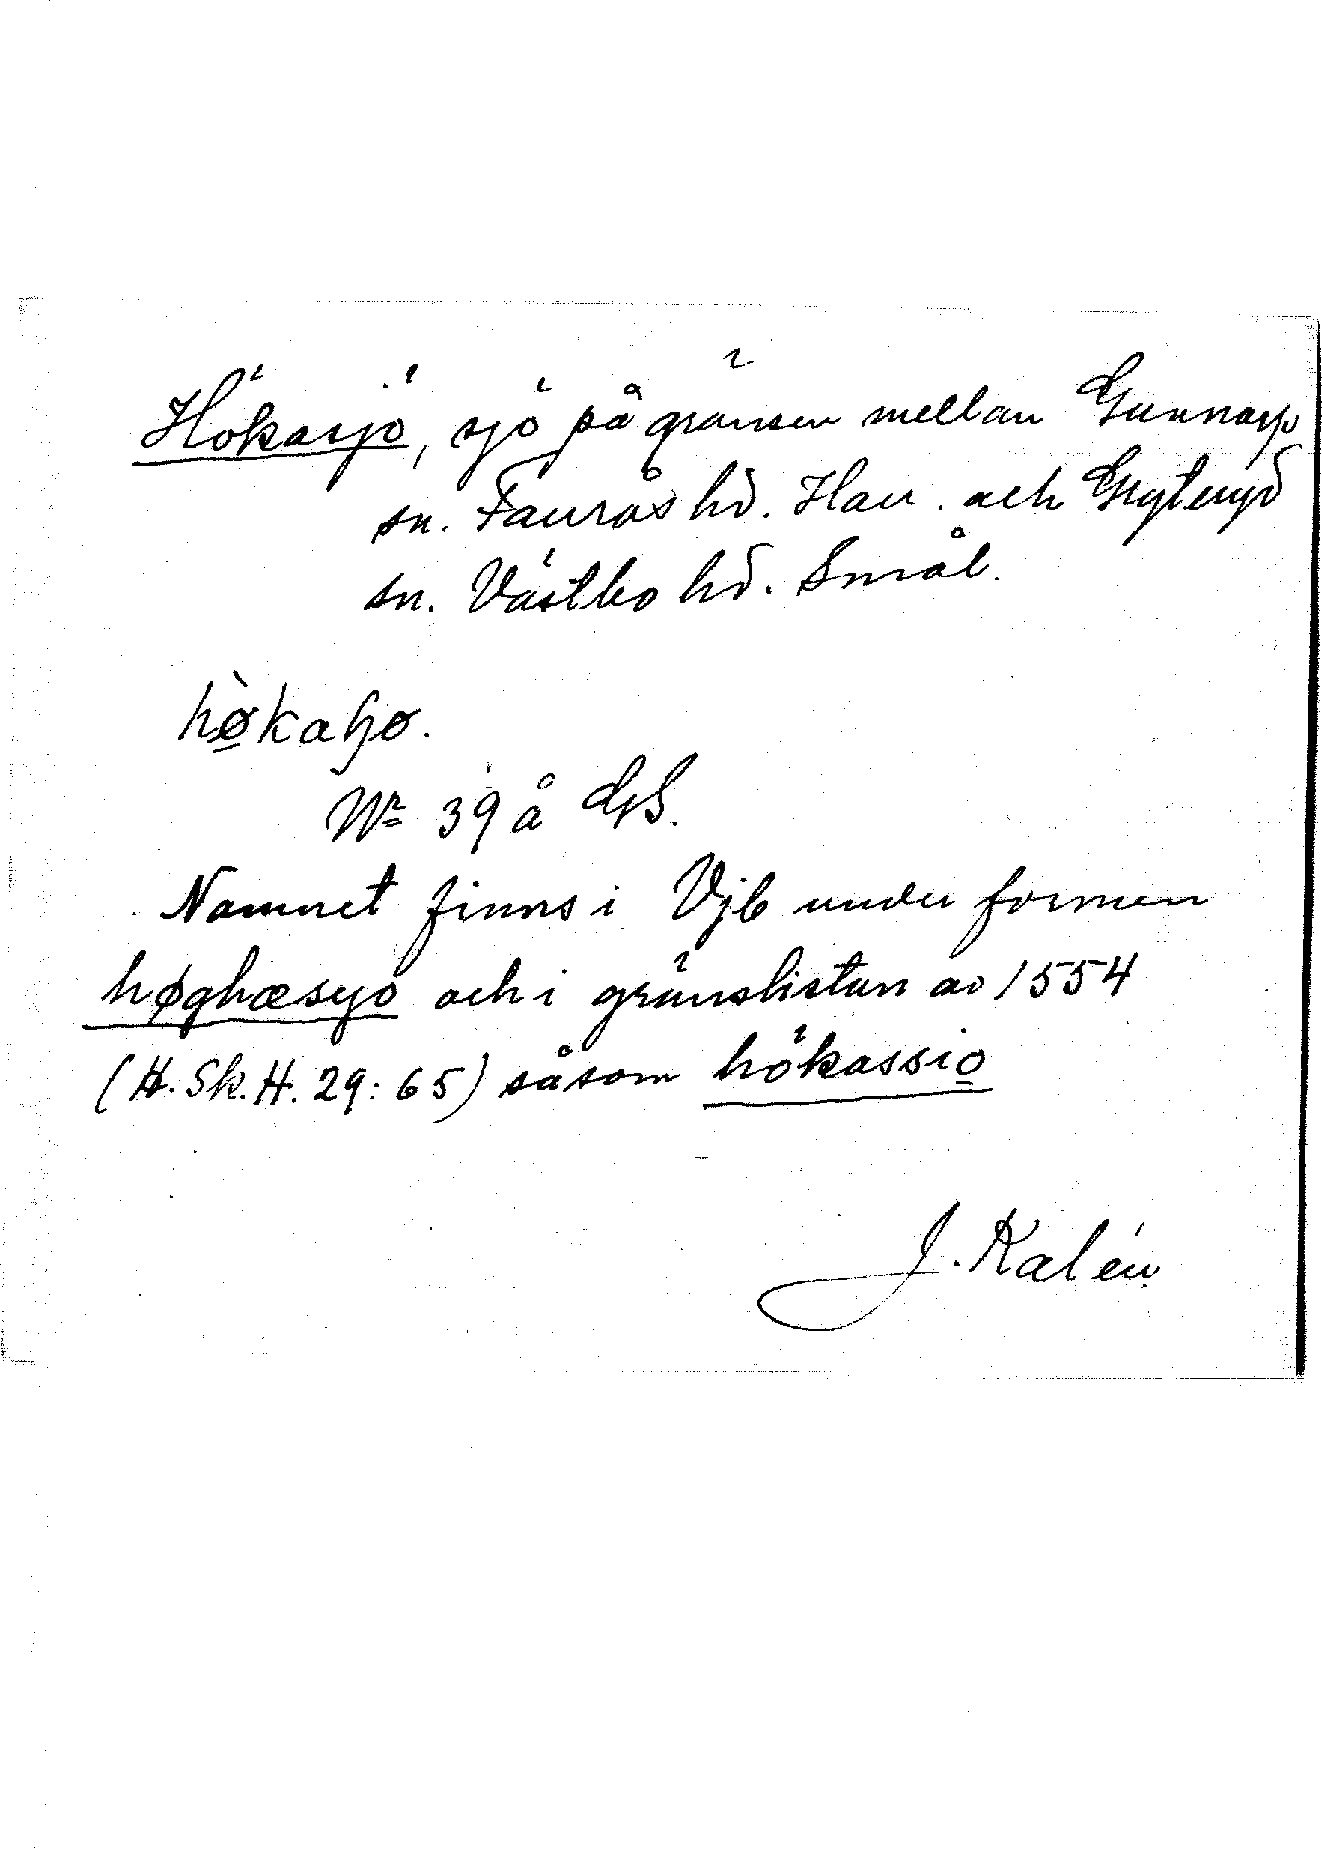 Hökasjö, sjö på gränsen mellan Gunnarp
sn. Faurås hd. Hall. och Gryteryd
sn. Västbo hd. Smål.
hø̀kaʃjø.
Nr 39 å GS.
Namnet finns i Vjb under formen
høghæsyö och i gränslistan av 1554
(H. Sk. H. 29: 65) såsom hökassio
J. Kalén